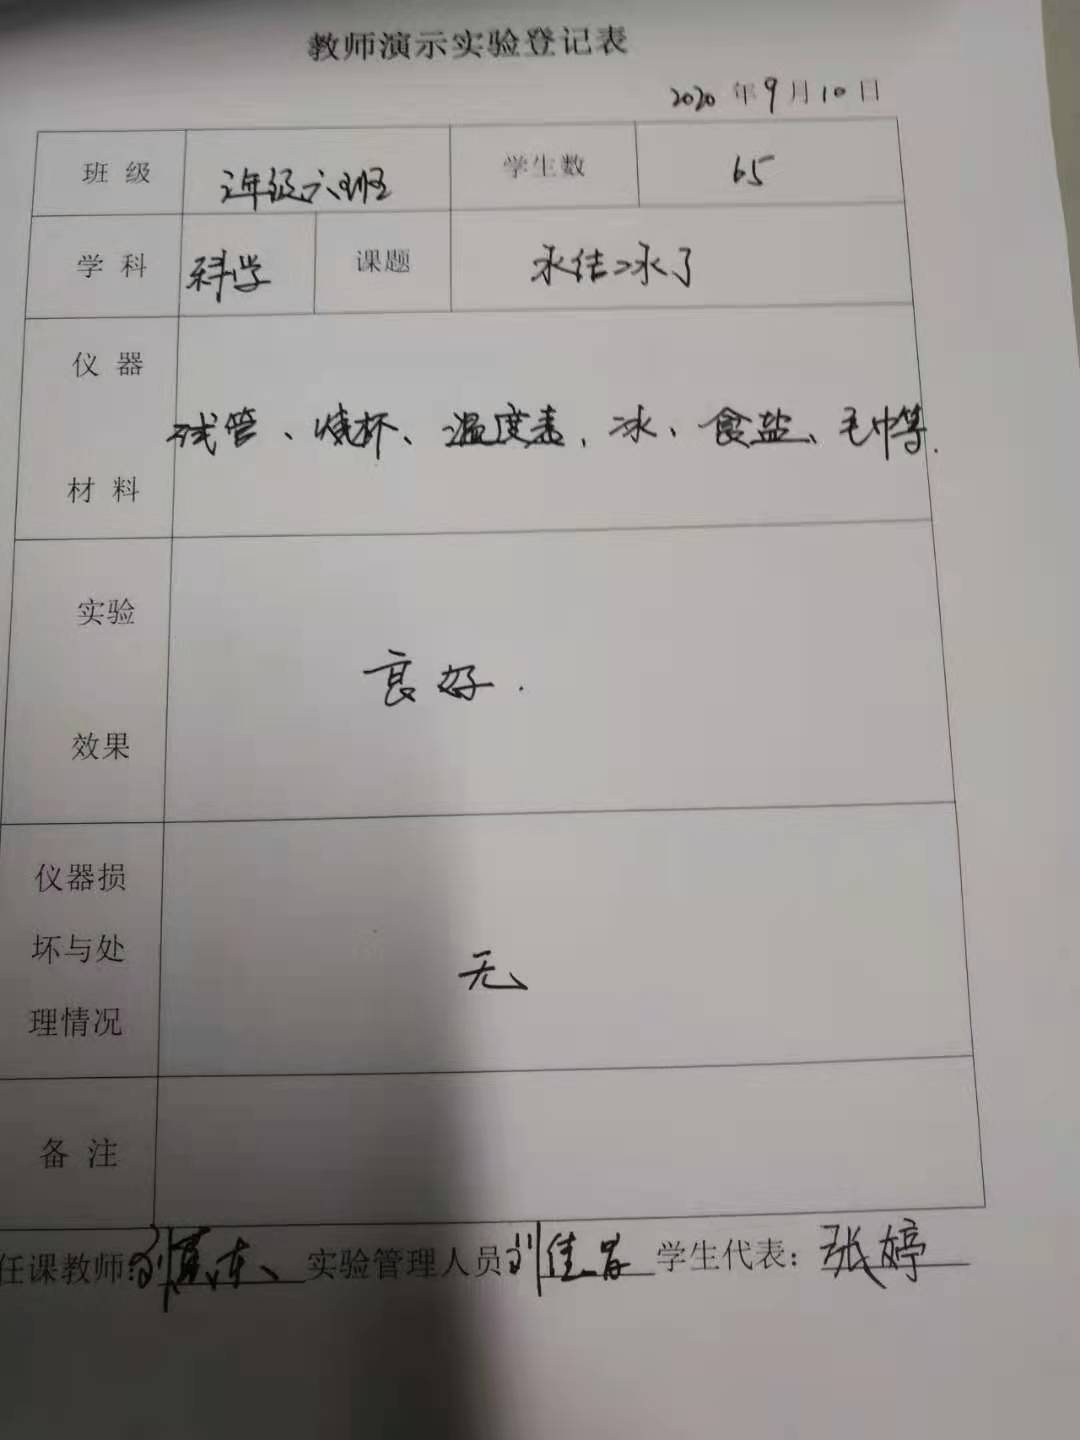 教师演示实验登记表
2020 年 9 月 10 日
班 级 年级六班 学生数 65
学 科 科学 课题 水结冰了
仪 器
试管、烧杯、温度表、冰、食盐、毛巾等.
材 料
实验
良好.
效果
仪器损
坏与处
无
理情况
备 注
任课教师: 刘 东 实验管理人员 刘佳 学生代表: 张婷